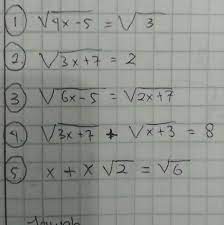 1 √4x-5 = √3
2. √3x+7 = 2
3 √6x-5 = √2x+7
4. √3x+7 + √x+3 = 8
5. x + x √2 = √6
Jawab